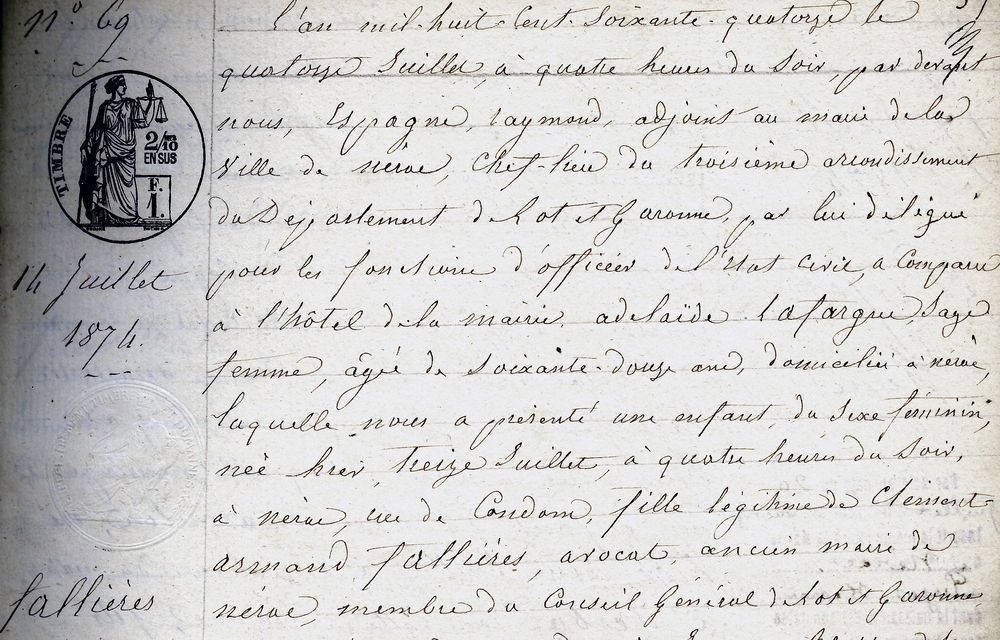 n.º 69
TIMBRE
2/10
EN SUS
F.
1.
14 Juillet
1874.
fallières
l'an mil-huit-Cent-soixante-quatorze le
quatorze Juillet, à quatre heures du soir, par devant
nous, Espagne, raymond, adjoint au maire de la
Ville de nérac, Chef-lieu du troisième arrondissement
du Département de Lot et Garonne, par lui délégué
pour les fonctions d'officier de l'état civil, a Comparu
à l'hôtel de la mairie, adélaïde lafargue, sage
femme, âgée de soixante-douze ans, domiciliée à nérac,
laquelle nous a présenté une enfant du sexe féminin,
née hier, treize Juillet, à quatre heures du soir,
à nérac, rue de Condom, fille légitime de Clement-
armand fallières, avocat, ancien maire de
nérac, membre du Conseil Général de Lot et Garonne